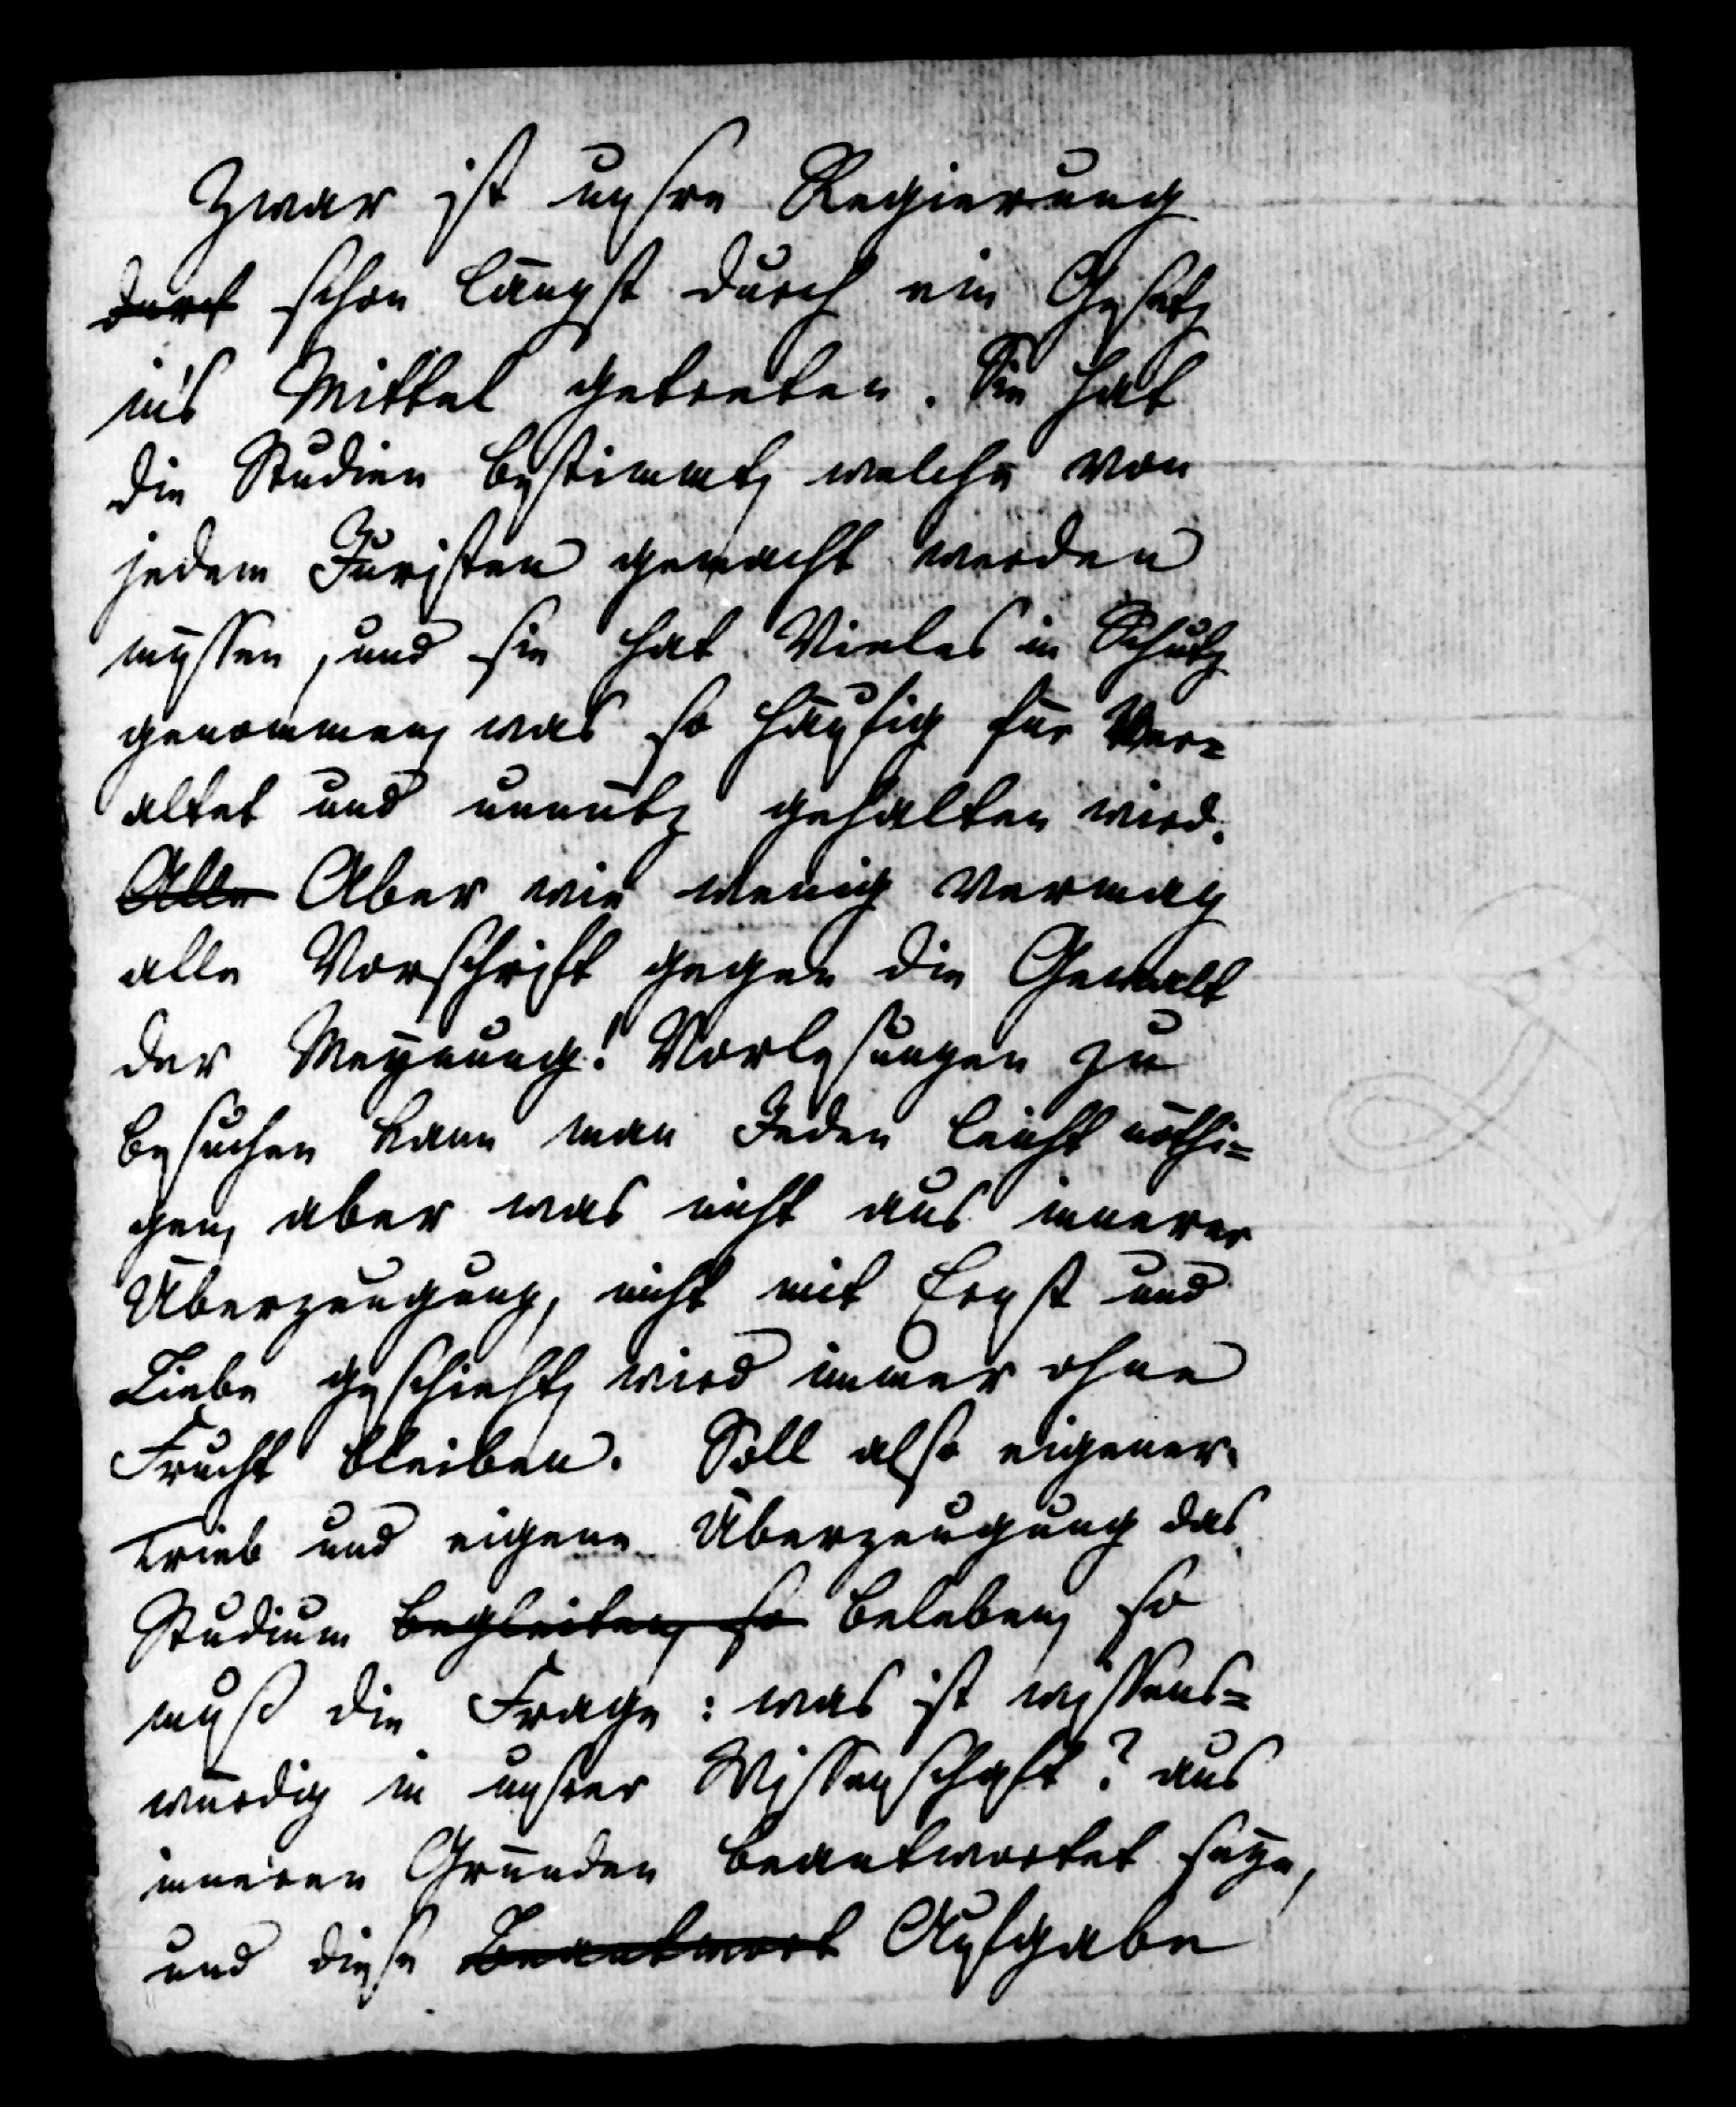 Zwar ist unsre Regierung
durch schon längst durch ein Gesetz
in's Mittel getreten. Sie hat
die Studien bestimmt, welche von
jedem Juristen gemacht werden
müssen, und sie hat Vieles in Schutz
genommen, was so häufig für Ver=
altet und unnütz gehalten wird.
Alle Aber wie wenig vermag
alle Vorschrift gegen die Gewalt
der Meynung! Vorlesungen zu
besuchen kann man Jeden leicht nöthi=
gen, aber was nicht aus innerer
Überzeugung, nicht mit Ernst und
Liebe geschieht, wird immer ohne
Frucht bleiben. Soll also eigener
Trieb und eigene Überzeugung das
Studium begleiten, so beleben, so
muß die Frage: was ist wissens=
würdig in unsrer Wissenschaft? aus
inneren Gründen beantwortet seyn,
und diese Beantwort Aufgabe